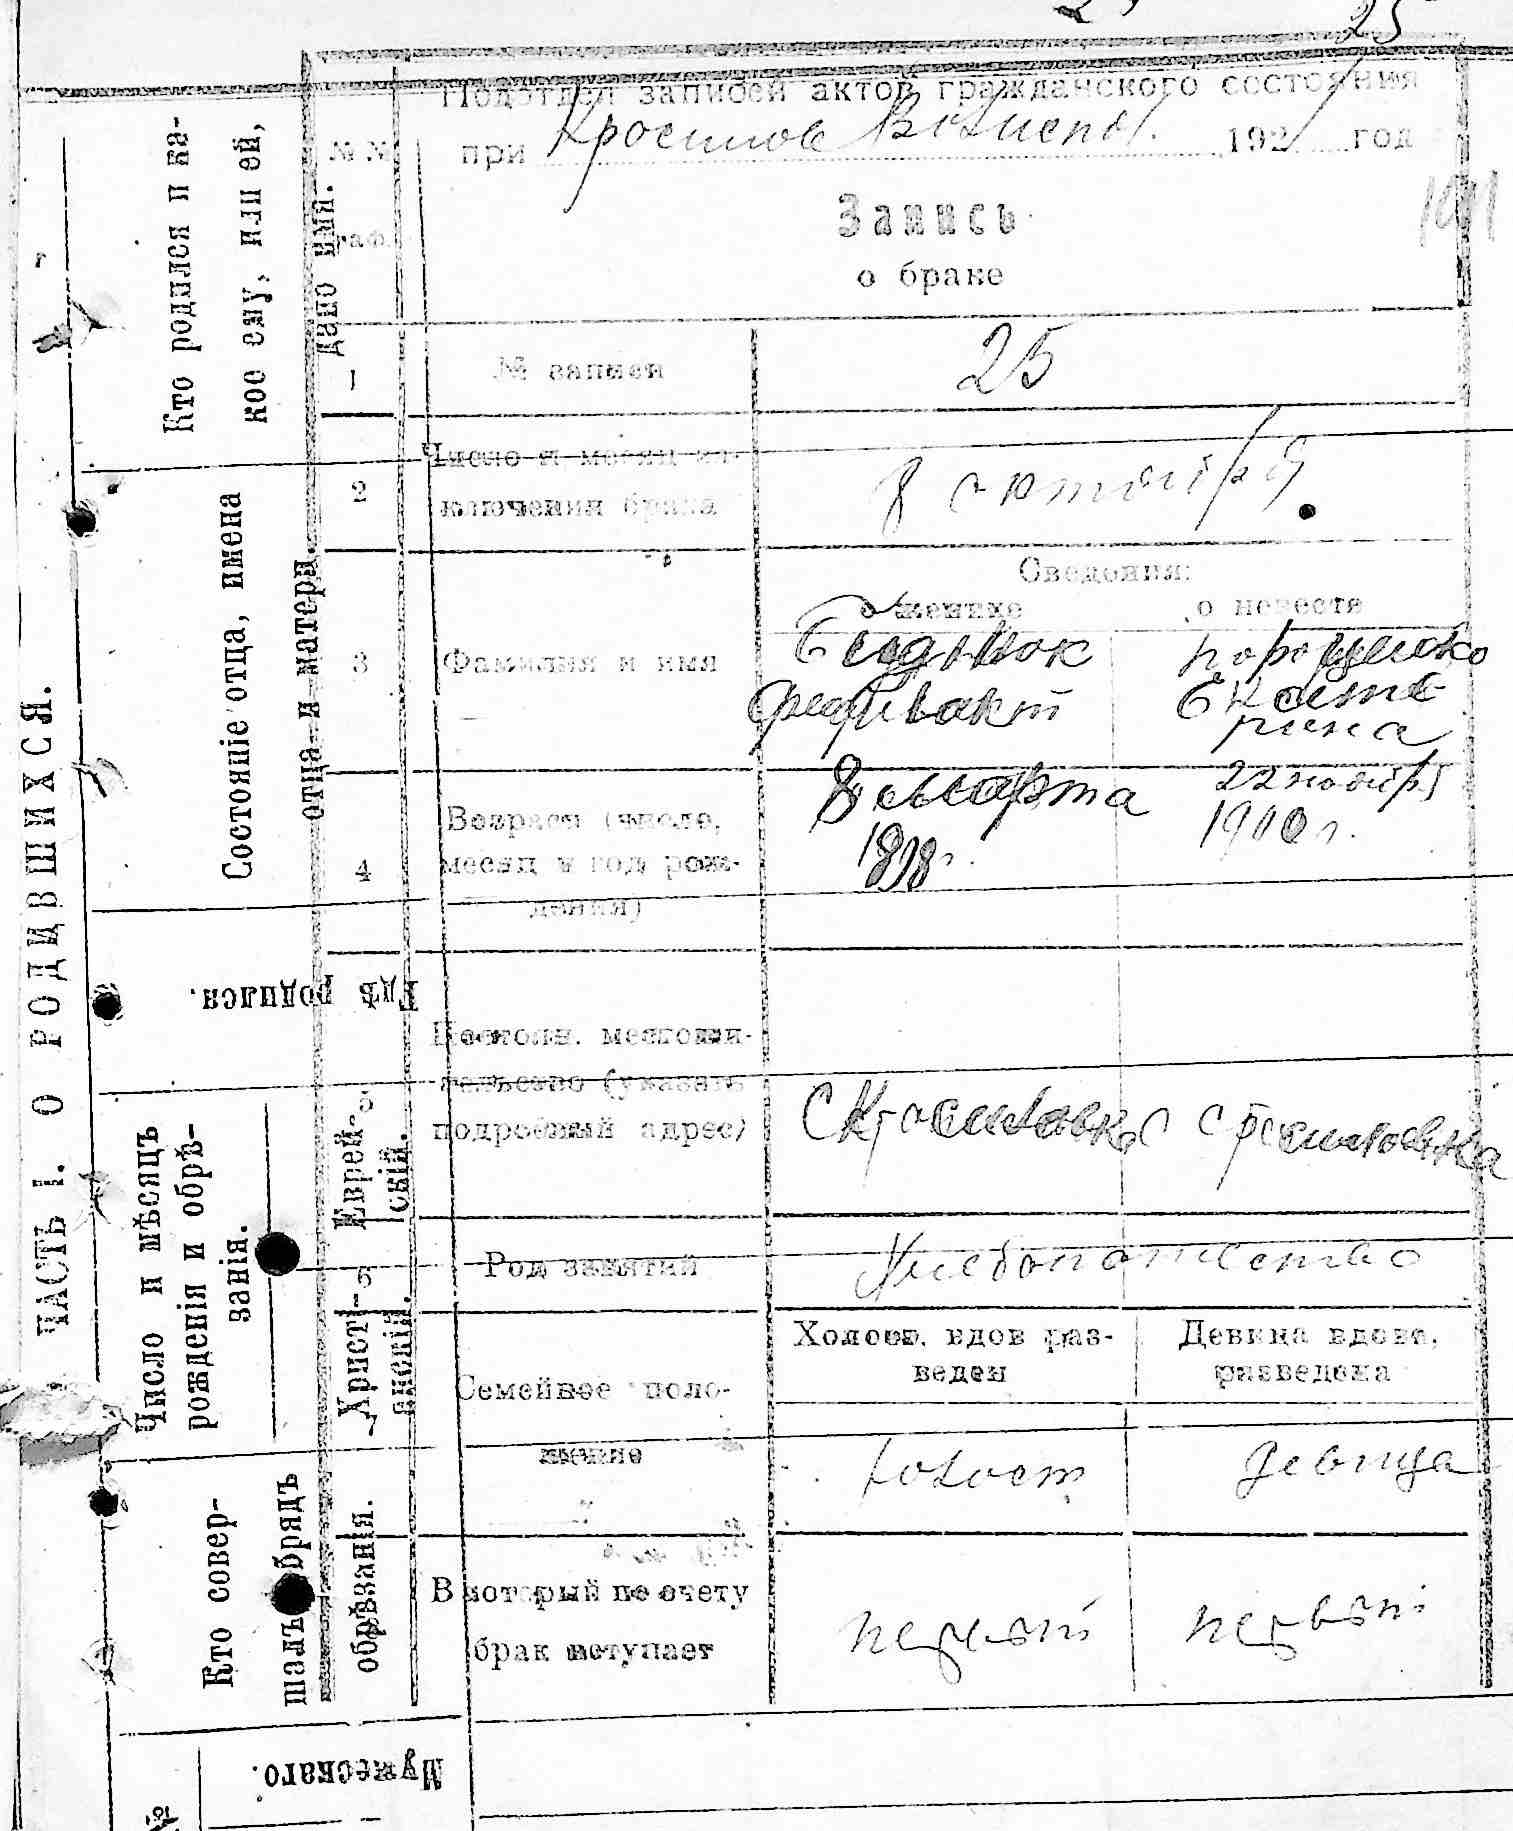 25
Подотдел записей актов гражданского состояния
при Кросилов Волиспол. 1921 год
№ №
граф.
Запись
о браке
1 № записи 25
2 Число и месяц за-
ключения брака 8 октября
Сведения:
о женихе о невесте
3 Фамилия и имя
порошенко
Екате
рина
4 Возраст (число,
месяц и год рож-
дения)
8 марта
1898 г.
22 ноября
1900 г.
5 Постоян. местожи-
тельство (указать
подробный адрес)
С Кросиловка с Кросиловка
6 Род занятий Хлебопашество
Семейное поло-
жение
Холост, вдов раз-
веден
Девица вдова,
разведена
холост девица
В который по счету
брак вступает
первый первый
ЧАСТЬ I. О РОДИВШИХСЯ.
Кто родился и ка-
кое ему, или ей,
дано имя.
Состояніе отца, имена
отца и матери.
Гдѣ родился.
Число и мѣсяцъ
рожденія и обрѣ-
занія.
Еврей-
скій.
Христі-
анскій.
Кто совер-
шалъ обрядъ
обрѣзанія.
Мужескаго.
№